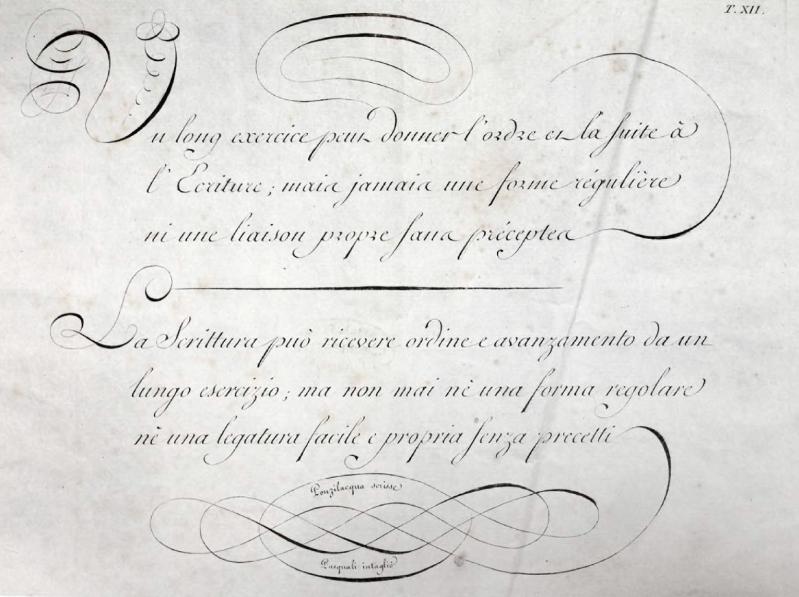 T. XII.
Un long exercice peut donner l'ordre et la suite à
l'Ecriture; mais jamais une forme régulière
ni une liaison propre sans préceptes
La Scrittura può ricevere ordine e avanzamento da un
lungo esercizio; ma non mai nè una forma regolare
nè una legatura facile e propria senza precetti
Pouzilacqua scrisse
Pasquali intagliò